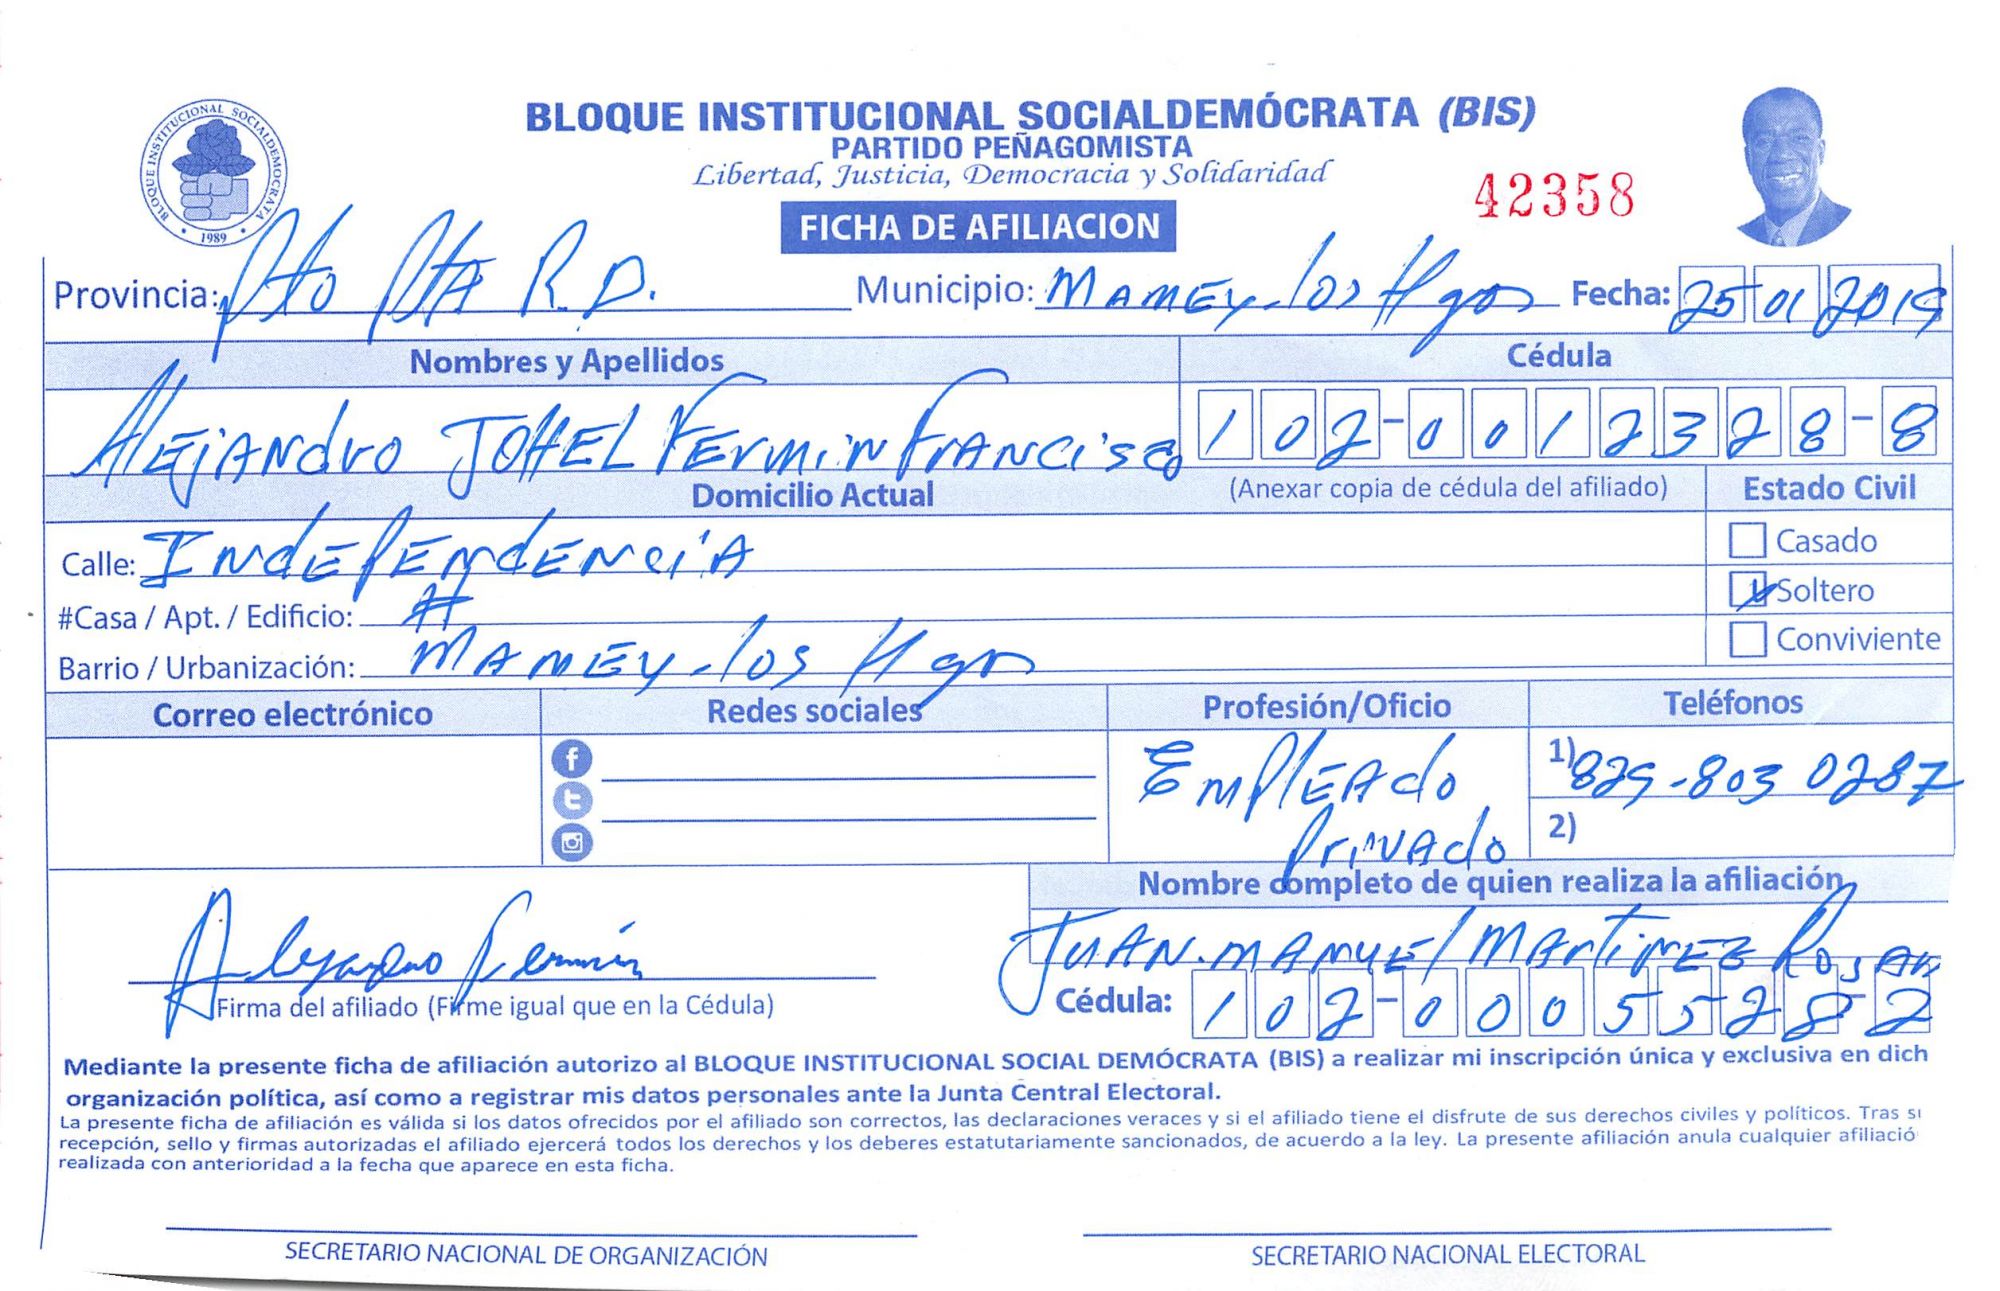 BLOQUE INSTITUCIONAL SOCIALDEMÓCRATA (BIS)
PARTIDO PEÑAGOMISTA
Libertad, Justicia, Democracia y Solidaridad
BLOQUE INSTITUCIONAL SOCIALDEMOCRATA
1989
42358
FICHA DE AFILIACION
Provincia: Pto Pta R.D. Municipio: MAMEY-los Hgos Fecha: 25 01 2019
Nombres y Apellidos Cédula
ALEJANdro JOHEL FErmin FrANCisco 102-0012328-8
Domicilio Actual (Anexar copia de cédula del afiliado) Estado Civil
Calle: INdEPENdENCiA Casado
#Casa / Apt. / Edificio: # Soltero
Barrio / Urbanización: MAMEY-los Hgos Conviviente
Correo electrónico Redes sociales Profesión/Oficio Teléfonos
EmPlEAdo 1) 829-803 0287
PriVAdo 2)
Nombre completo de quien realiza la afiliación
JUAN.MANUEl MArtiNEZ
Alejandro Fermín
Firma del afiliado (Firme igual que en la Cédula) Cédula: 102-0005528-2
Mediante la presente ficha de afiliación autorizo al BLOQUE INSTITUCIONAL SOCIAL DEMÓCRATA (BIS) a realizar mi inscripción única y exclusiva en dich
organización política, así como a registrar mis datos personales ante la Junta Central Electoral.
La presente ficha de afiliación es válida si los datos ofrecidos por el afiliado son correctos, las declaraciones veraces y si el afiliado tiene el disfrute de sus derechos civiles y políticos. Tras su
recepción, sello y firmas autorizadas el afiliado ejercerá todos los derechos y los deberes estatutariamente sancionados, de acuerdo a la ley. La presente afiliación anula cualquier afiliació
realizada con anterioridad a la fecha que aparece en esta ficha.
SECRETARIO NACIONAL DE ORGANIZACIÓN SECRETARIO NACIONAL ELECTORAL